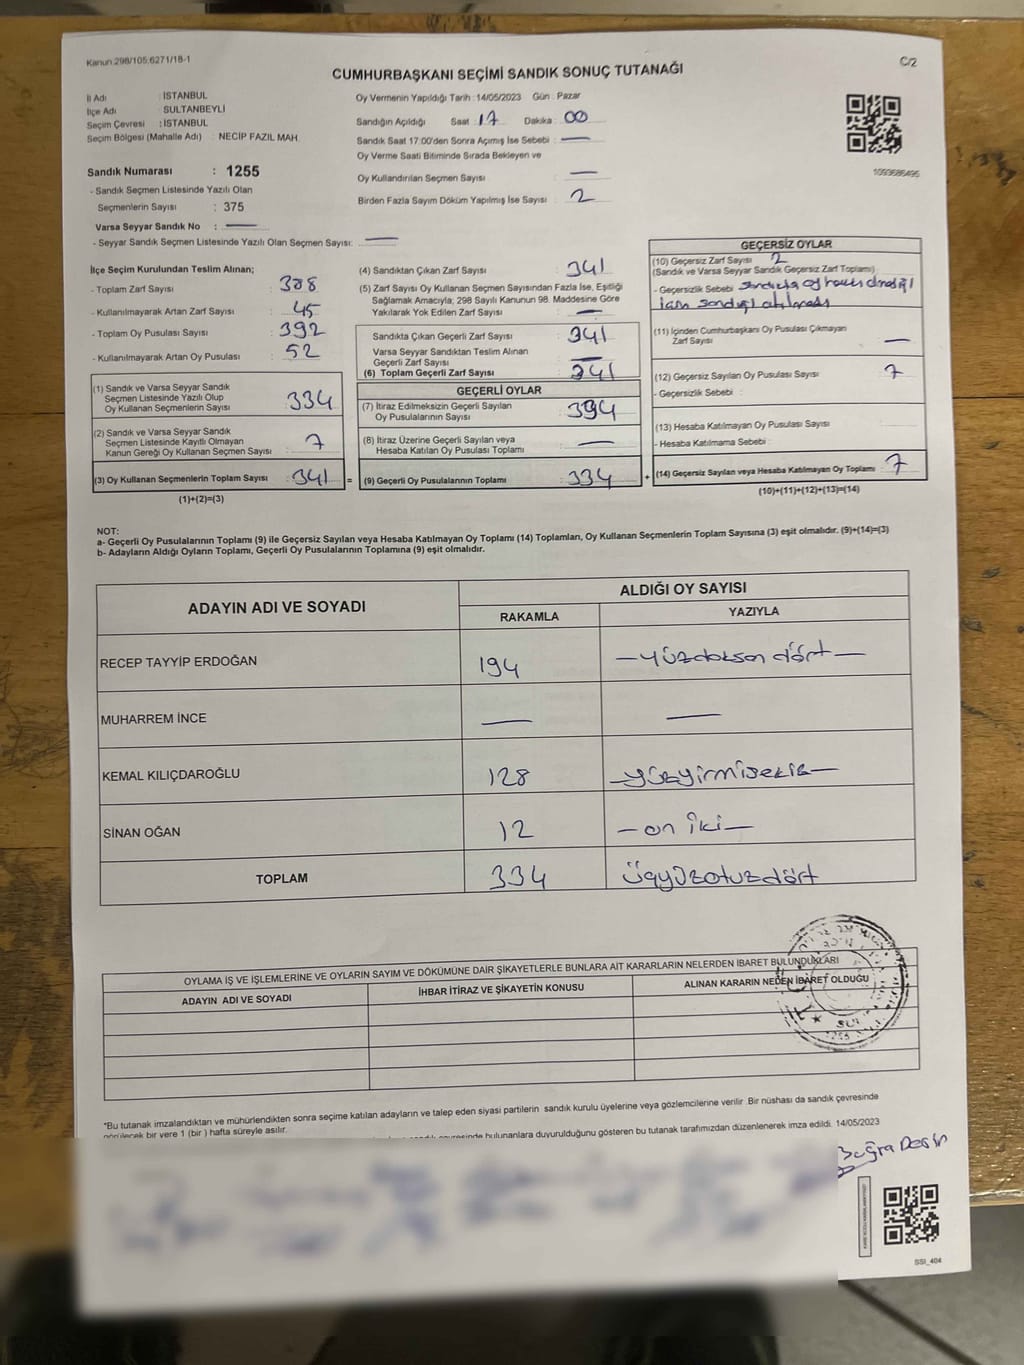 Kanun:298/105:6271/18-1
C/2
CUMHURBAŞKANI SEÇİMİ SANDIK SONUÇ TUTANAĞI
İl Adı : İSTANBUL
İlçe Adı : SULTANBEYLİ
Seçim Çevresi : İSTANBUL
Seçim Bölgesi (Mahalle Adı) : NECİP FAZIL MAH.
Sandık Numarası : 1255
- Sandık Seçmen Listesinde Yazılı Olan
Seçmenlerin Sayısı : 375
Varsa Seyyar Sandık No : —
- Seyyar Sandık Seçmen Listesinde Yazılı Olan Seçmen Sayısı: —
Oy Vermenin Yapıldığı Tarih : 14/05/2023 Gün : Pazar
Sandığın Açıldığı Saat : 17 Dakika : 00
Sandık Saat 17.00'den Sonra Açımış İse Sebebi : —
Oy Verme Saati Bitiminde Sırada Bekleyen ve
Oy Kullandırılan Seçmen Sayısı : —
Birden Fazla Sayım Döküm Yapılmış İse Sayısı : 2
1093686495
İlçe Seçim Kurulundan Teslim Alınan;
- Toplam Zarf Sayısı : 388
- Kullanılmayarak Artan Zarf Sayısı : 45
- Toplam Oy Pusulası Sayısı : 392
- Kullanılmayarak Artan Oy Pusulası : 52
(1) Sandık ve Varsa Seyyar Sandık
Seçmen Listesinde Yazılı Olup
Oy Kullanan Seçmenlerin Sayısı : 334
(2) Sandık ve Varsa Seyyar Sandık
Seçmen Listesinde Kayıtlı Olmayan
Kanun Gereği Oy Kullanan Seçmen Sayısı : 7
(3) Oy Kullanan Seçmenlerin Toplam Sayısı : 341 =
(1)+(2)=(3)
(4) Sandıktan Çıkan Zarf Sayısı : 341
(5) Zarf Sayısı Oy Kullanan Seçmen Sayısından Fazla İse, Eşitliği
Sağlamak Amacıyla; 298 Sayılı Kanunun 98. Maddesine Göre
Yakılarak Yok Edilen Zarf Sayısı : —
Sandıkta Çıkan Geçerli Zarf Sayısı : 341
Varsa Seyyar Sandıktan Teslim Alınan
Geçerli Zarf Sayısı : —
(6) Toplam Geçerli Zarf Sayısı : 341
GEÇERLİ OYLAR
(7) İtiraz Edilmeksizin Geçerli Sayılan
Oy Pusulalarının Sayısı : 394
(8) İtiraz Üzerine Geçerli Sayılan veya
Hesaba Katılan Oy Pusulası Toplamı : —
(9) Geçerli Oy Pusulalarının Toplamı : 334 +
GEÇERSİZ OYLAR
(10) Geçersiz Zarf Sayısı 2
(Sandık ve Varsa Seyyar Sandık Geçersiz Zarf Toplamı)
- Geçersizlik Sebebi
(11) İçinden Cumhurbaşkanı Oy Pusulası Çıkmayan
Zarf Sayısı : —
(12) Geçersiz Sayılan Oy Pusulası Sayısı : 7
- Geçersizlik Sebebi :
(13) Hesaba Katılmayan Oy Pusulası Sayısı :
- Hesaba Katılmama Sebebi :
(14) Geçersiz Sayılan veya Hesaba Katılmayan Oy Toplamı : 7
(10)+(11)+(12)+(13)=(14)
NOT:
a- Geçerli Oy Pusulalarının Toplamı (9) ile Geçersiz Sayılan veya Hesaba Katılmayan Oy Toplamı (14) Toplamları, Oy Kullanan Seçmenlerin Toplam Sayısına (3) eşit olmalıdır. (9)+(14)=(3)
b- Adayların Aldığı Oyların Toplamı, Geçerli Oy Pusulalarının Toplamına (9) eşit olmalıdır.
ADAYIN ADI VE SOYADI ALDIĞI OY SAYISI
RAKAMLA YAZIYLA
RECEP TAYYİP ERDOĞAN 194 —yüzdoksan dört—
MUHARREM İNCE — —
KEMAL KILIÇDAROĞLU 128 —yüzyirmisekiz—
SİNAN OĞAN 12 —on iki—
TOPLAM 334 üçyüzotuzdört
OYLAMA İŞ VE İŞLEMLERİNE VE OYLARIN SAYIM VE DÖKÜMÜNE DAİR ŞİKAYETLERLE BUNLARA AİT KARARLARIN NELERDEN İBARET BULUNDUKLARI
ADAYIN ADI VE SOYADI İHBAR İTİRAZ VE ŞİKAYETİN KONUSU ALINAN KARARIN NEDEN İBARET OLDUĞU
*Bu tutanak imzalandıktan ve mühürlendikten sonra seçime katılan adayların ve talep eden siyasi partilerin sandık kurulu üyelerine veya gözlemcilerine verilir .Bir nüshası da sandık çevresinde
görülecek bir yere 1 (bir ) hafta süreyle asılır.
bulunanlara duyurulduğunu gösteren bu tutanak tarafımızdan düzenlenerek imza edildi. 14/05/2023
SSI_404